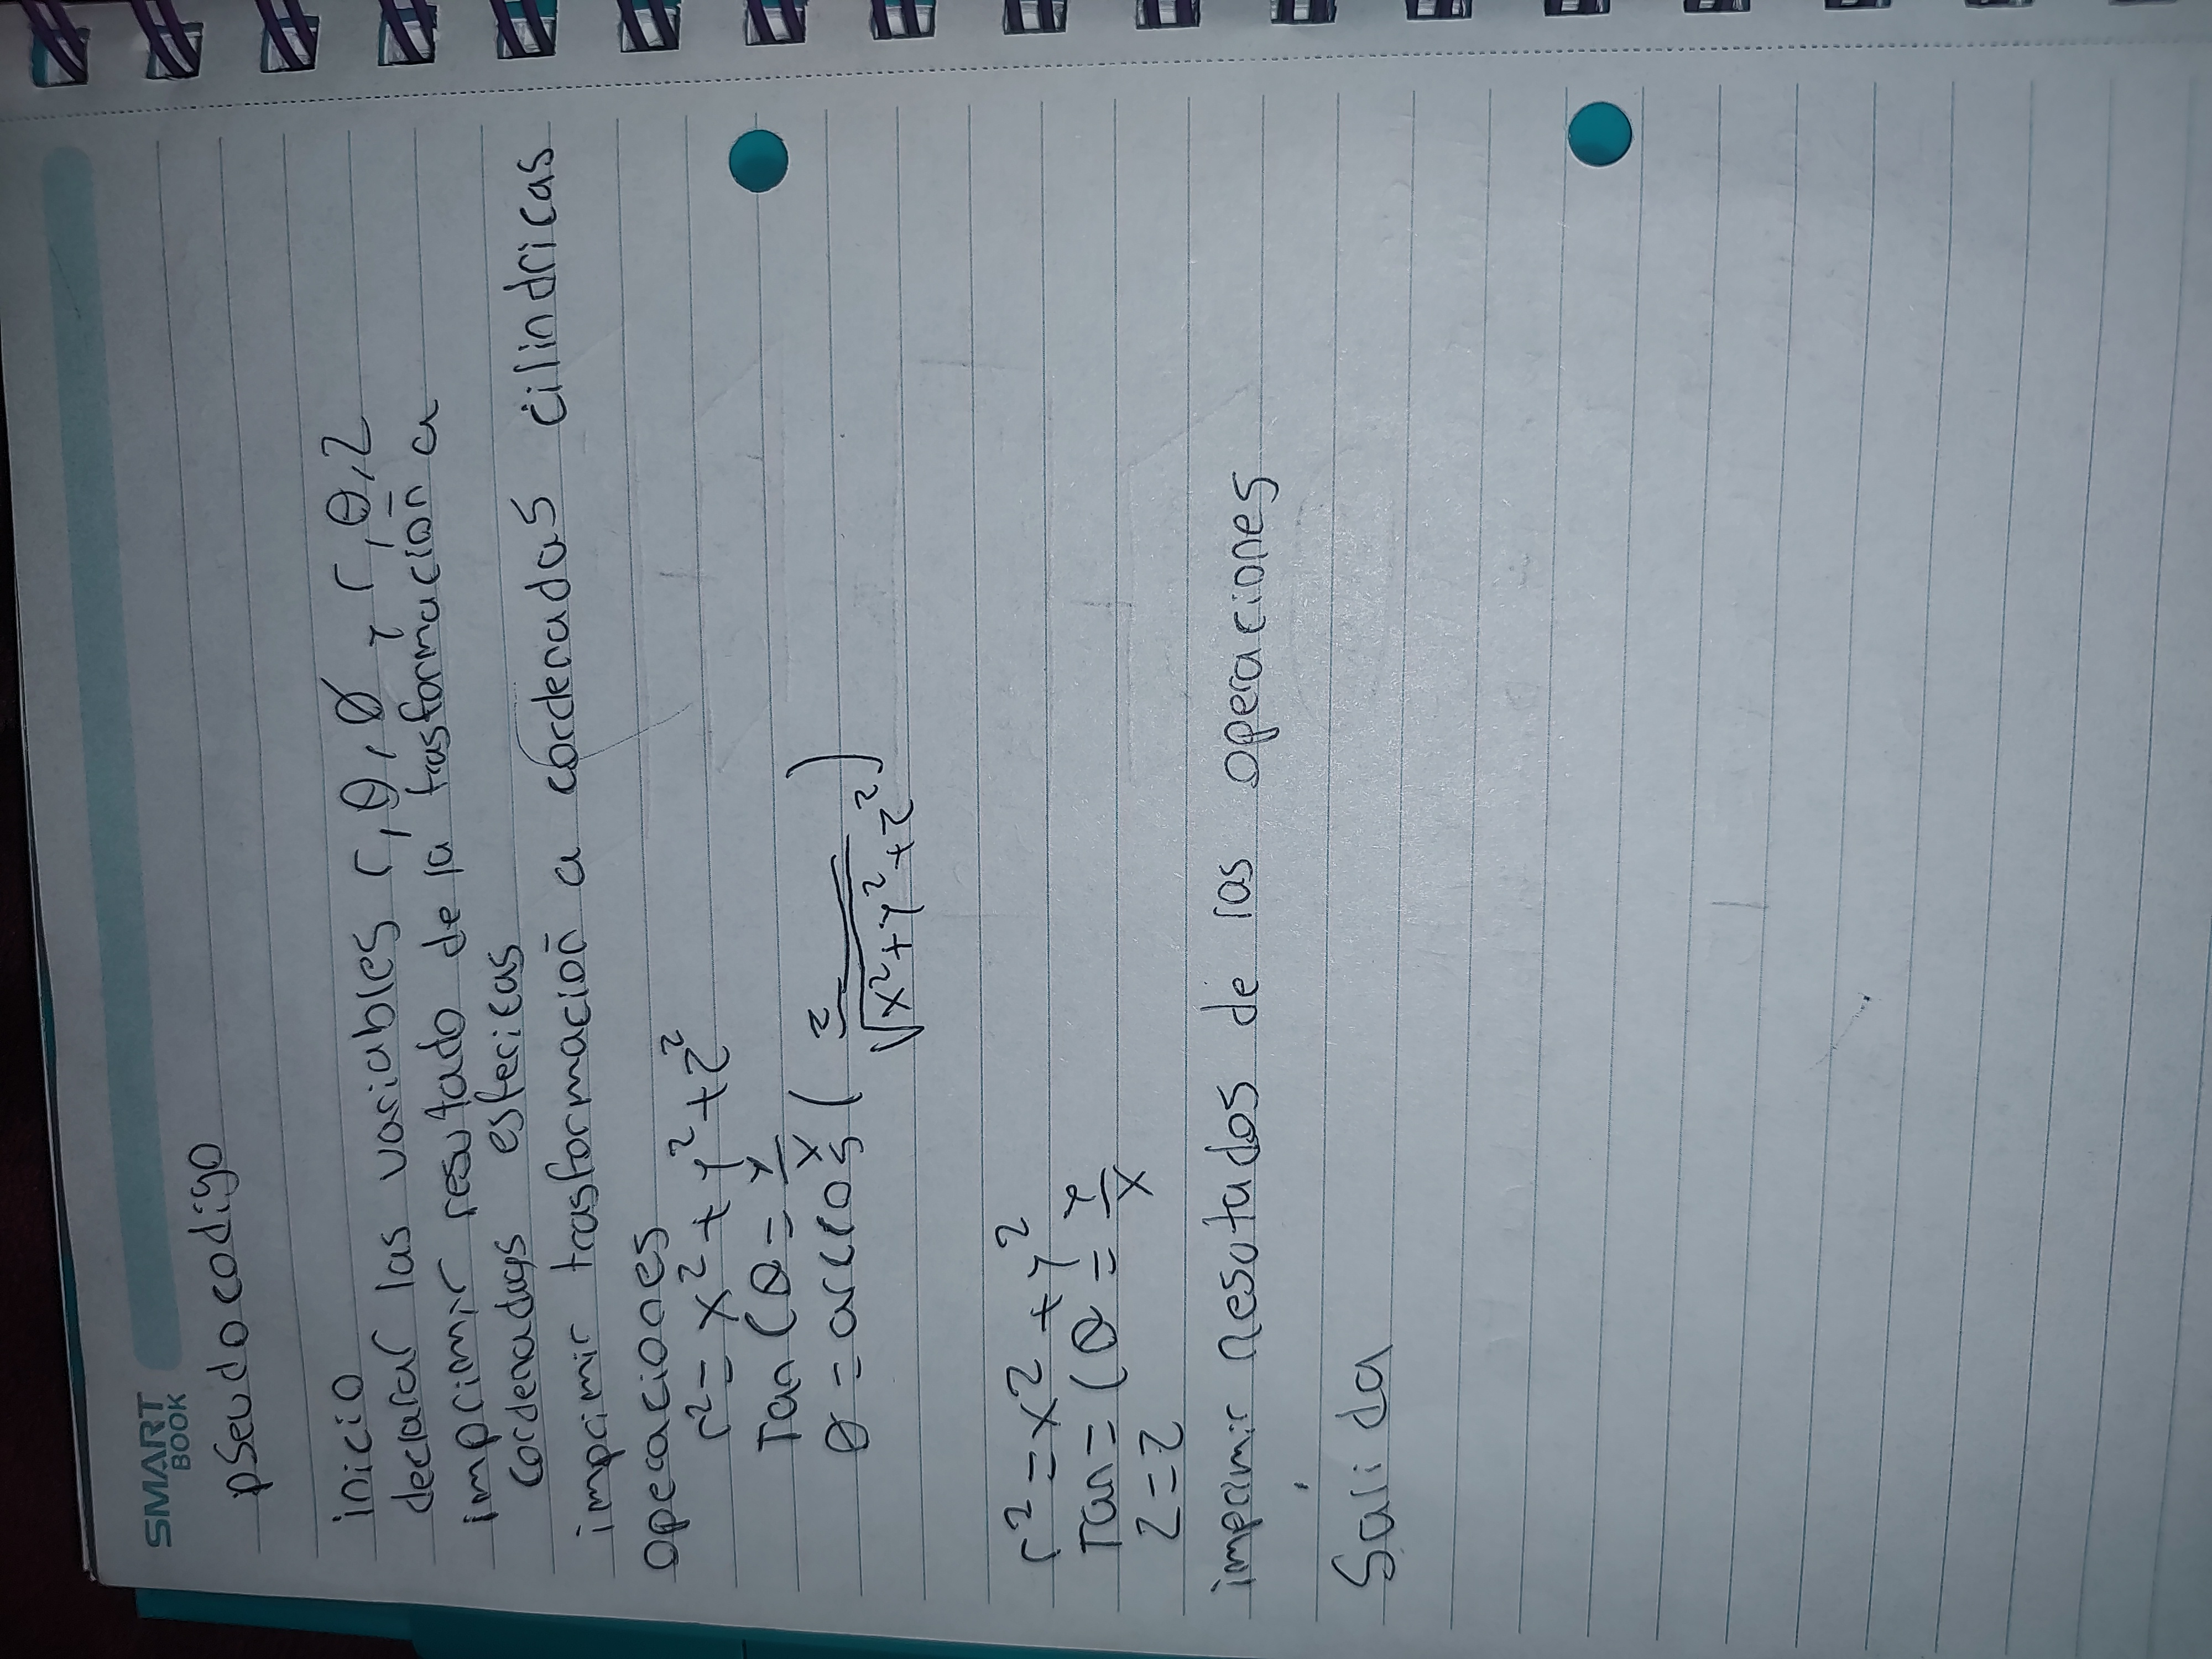 SMART
BOOK
pseudocodigo
inicio
declarar las variables r,θ,Ø y r,θ,z
imprimir resutado de la trasformacion a
cordenadas esfericas
imprimir trasformacion a cordenadas cilindricas
operaciones
r² = x² + y² + z²
Tan (θ = y/x
θ = arccos ( z/√x²+y²+z² )
r² = x² + y²
Tan = (θ = y/x
z = z
imprimir resutados de las operaciones
Salida